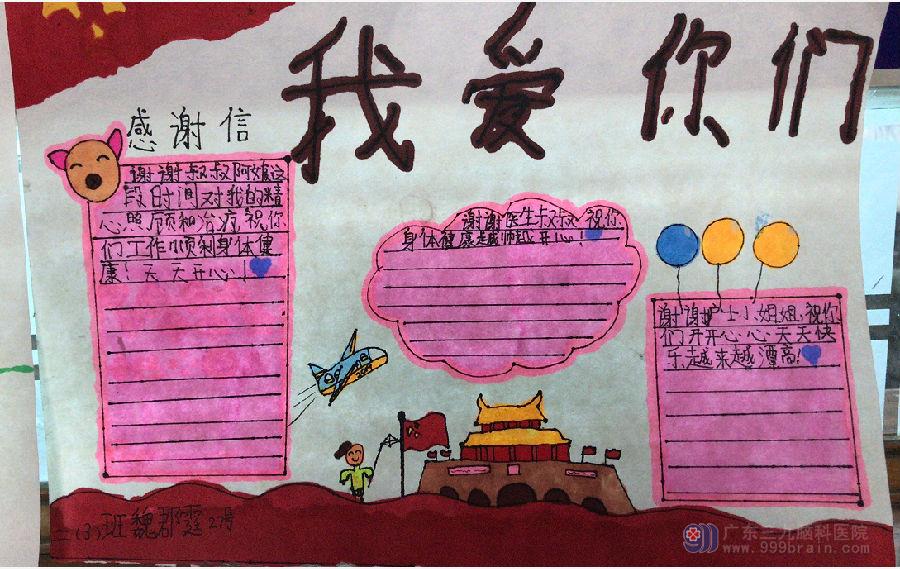 我爱你们
感谢信
谢谢叔叔阿姨这
段时间对我的精
心照顾和治疗,祝你
们工作顺利身体健
康!天天开心!
谢谢医生叔叔,祝你
身体健康越来越开心!
谢谢护士小姐姐,祝你
们开开心心,天天快
乐越来越漂亮!
二(3)班魏郡霆2号
广东三九脑科医院
www.999brain.com